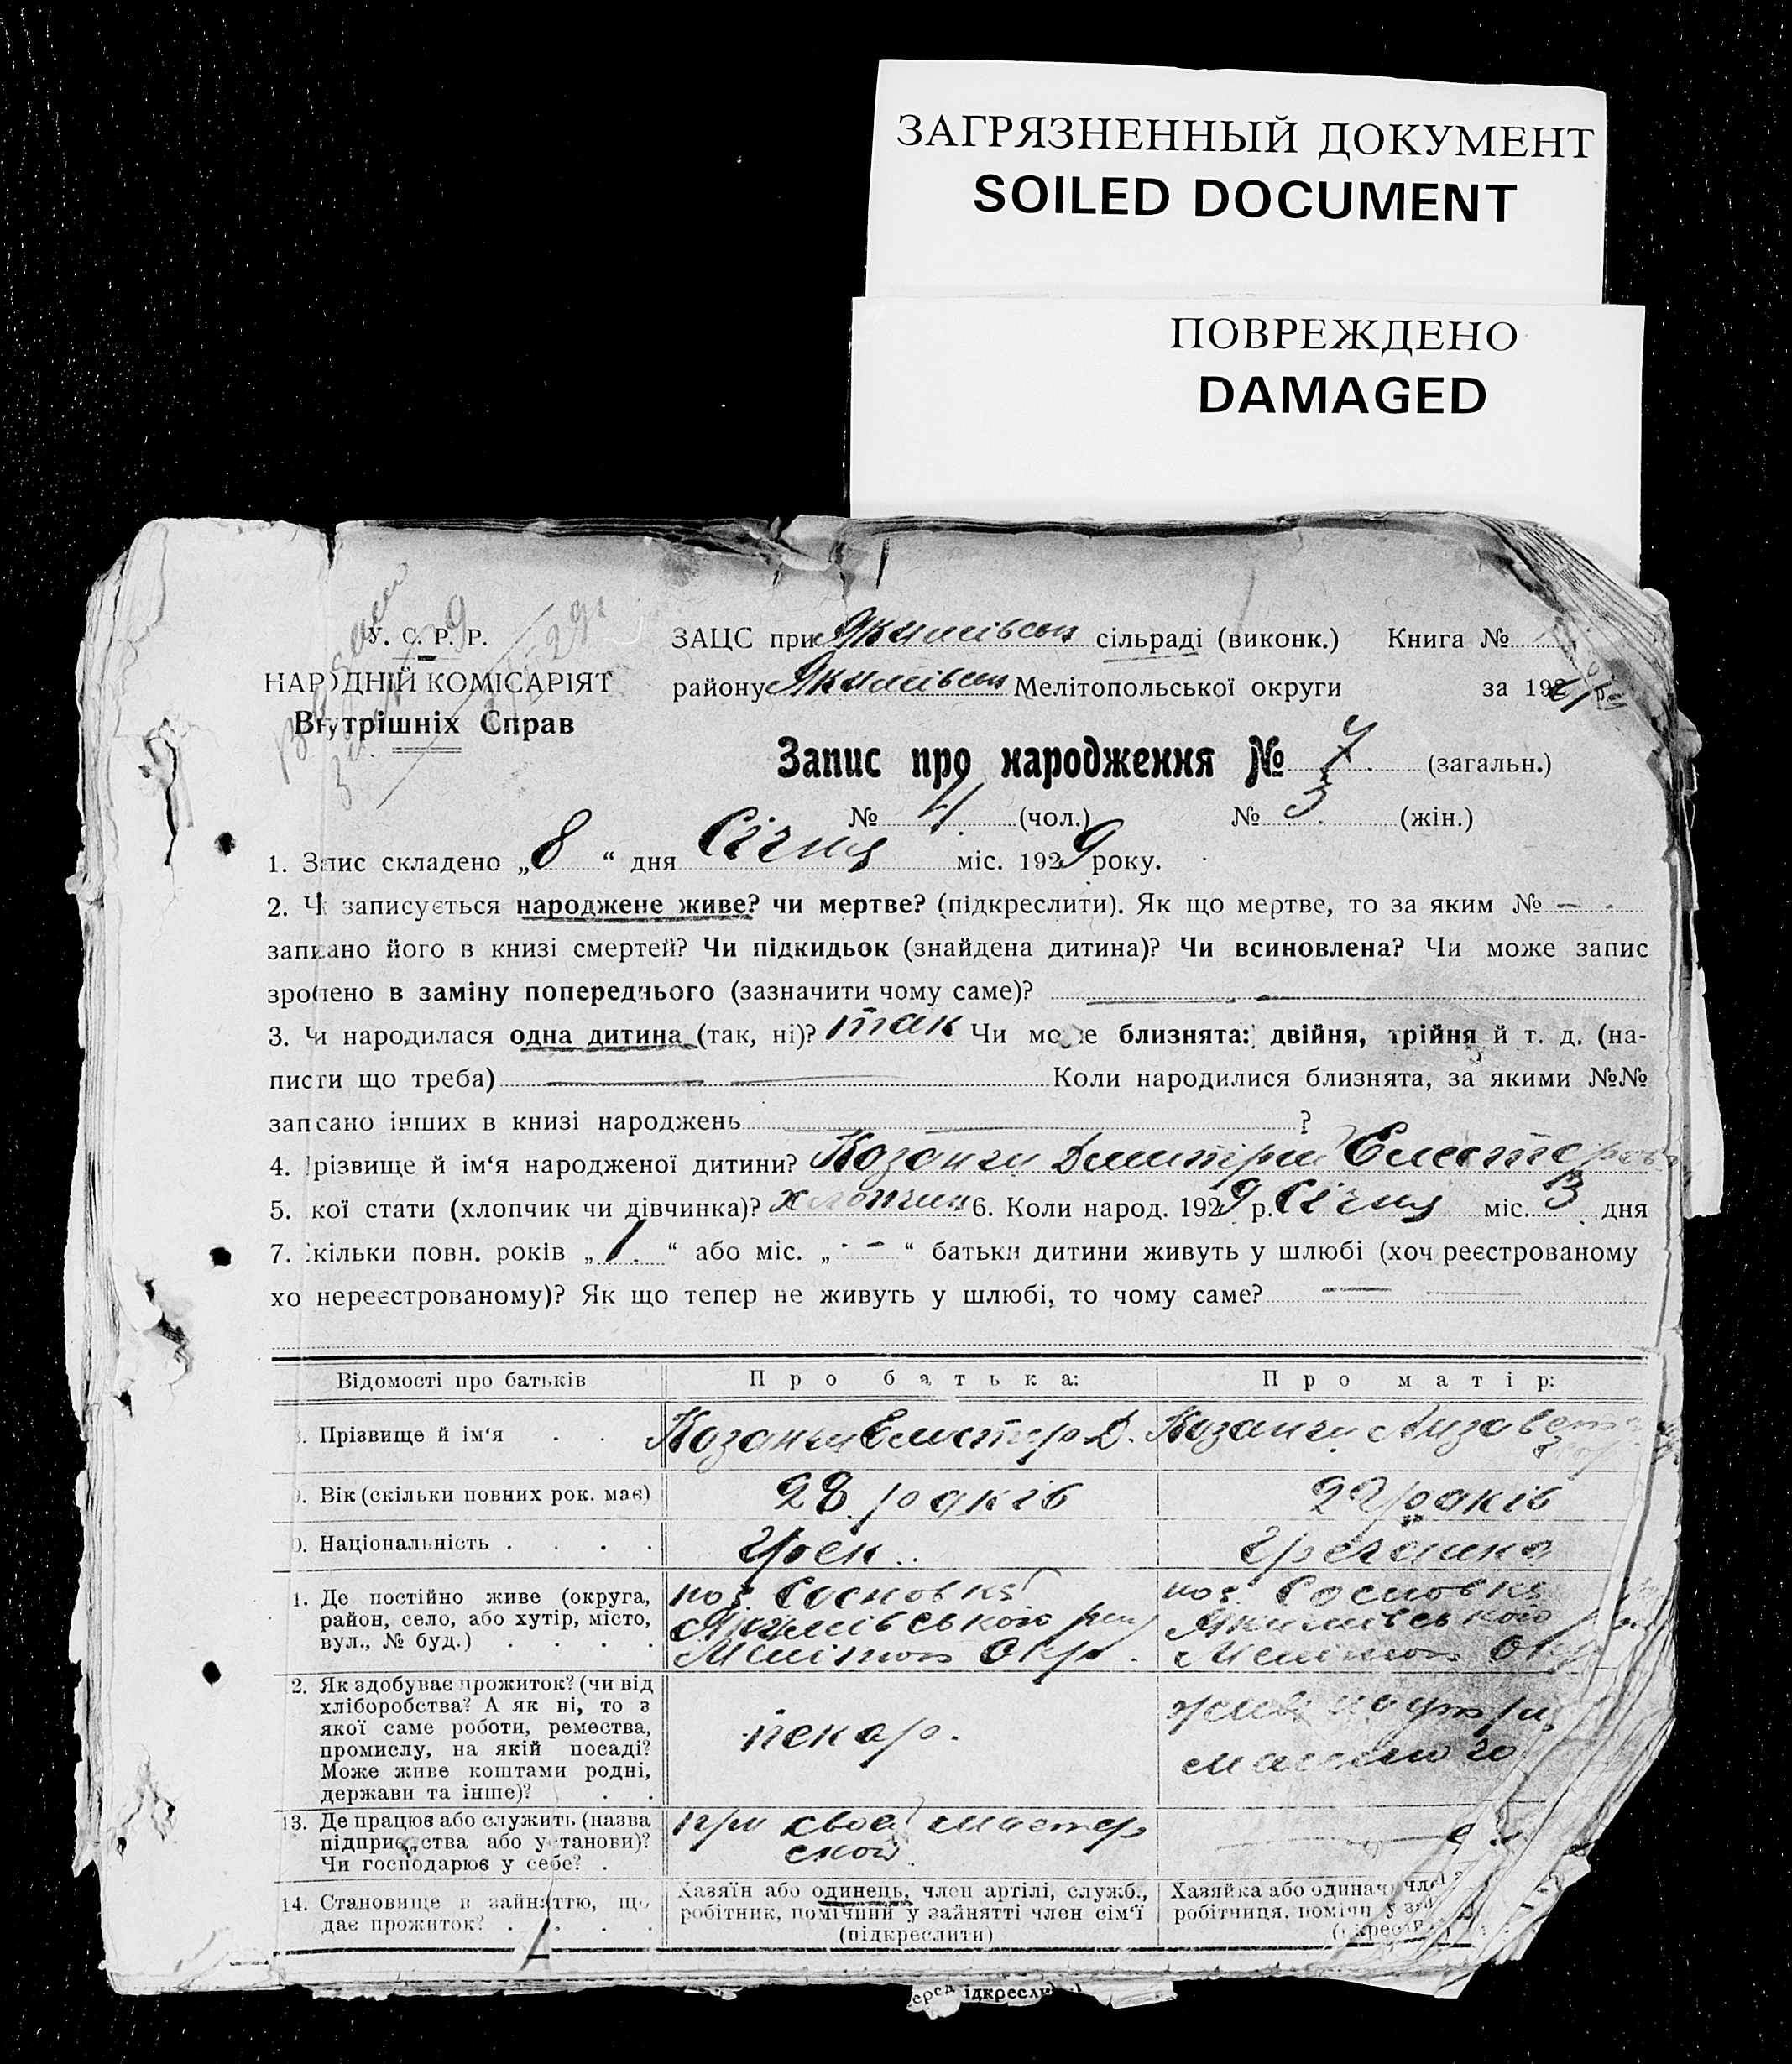 ЗАГРЯЗНЕННЫЙ ДОКУМЕНТ
SOILED DOCUMENT
ПОВРЕЖДЕНО
DAMAGED
У. С. Р. Р.
НАРОДНІЙ КОМІСАРІЯТ
Внутрішніх Справ
ЗАЦС при Якимівськ сільраді (виконк.) Книга №
району Якимівськ Мелітопольської округи за 192
Запис про народження № 7 (загальн.)
№ 4 (чол.) № 3 (жін.)
1. Запис складено „8“ дня Січня міс. 1929 року.
2. Чи записується народжене живе? чи мертве? (підкреслити). Як що мертве, то за яким № —
записано його в книзі смертей? Чи підкидьок (знайдена дитина)? Чи всиновлена? Чи може запис
зроблено в заміну попереднього (зазначити чому саме)? —
3. Чи народилася одна дитина (так, ні)? так Чи може близнята: двійня, трійня й т. д. (на-
писти що треба) — Коли народилися близнята, за якими №№
записано інших в книзі народжень — ?
4. Прізвище й ім'я народженої дитини? Козанги Дмитрій Елевтеров
5. кої стати (хлопчик чи дівчинка)? хлопчик 6. Коли народ. 1929 р. Січня міс. 3 дня
7. Скільки повн. років „1.“ або міс. „-“ батьки дитини живуть у шлюбі (хоч реєстрованому
хо нереєстрованому)? Як що тепер не живуть у шлюбі, то чому саме? —
Відомості про батьків Про батька: Про матір:
8. Прізвище й ім'я . . Козанги Елевтер Д. Козанги Лизавета
9. Вік (скільки повних рок. має) 28 років 22 років
0. Національність . . . . Грек.. Гречанка
1. Де постійно живе (округа,
район, село, або хутір, місто,
вул., № буд.) . . . .
пос. Сосновка
Якимівського рай
Меліտոп Окр.
пос. Сосновка
Якимівського
Меліտոп Окр
2. Як здобуває прожиток? (чи від
хліборобства? А як ні, то з
якої саме роботи, ремества,
промислу, на якій посаді?
Може живе коштами родні,
держави та інше)? . .
пекар.
13. Де працює або служить (назва
підприємства або установи)?
Чи господарює у себе? .
при своей мастер
ской
14. Становище в зайняттю, що
дає прожиток? . . . .
Хазяїн або одинець, член артілі, служб.,
робітник, помічний у зайнятті член сім'ї
(підкреслити)
Хазяйка або одинач
робітниця, помічн